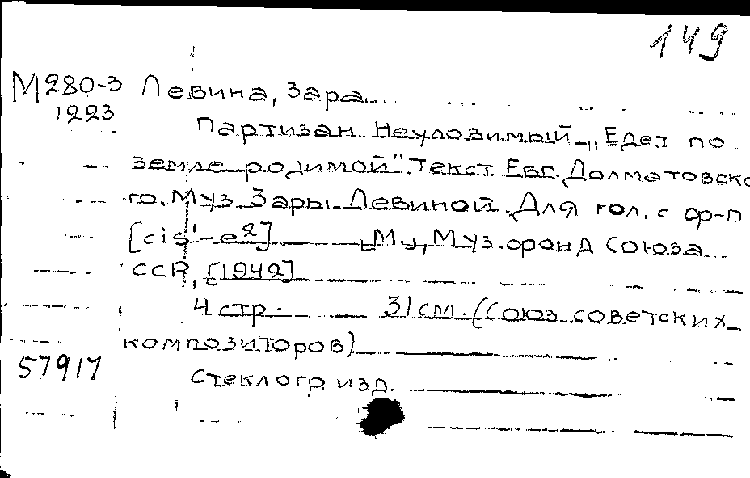 149
М280-3 Левина, Зара
1223
Партизан Неуловимый. „Едет по
земле родимой". Текст Евг. Долматовско
го. Муз. Зары Левиной. Для гол. с ф-п
[cis'-e²] М., Муз.фонд Союза
ССР, [1942]
4 стр. 31 см. (Союз советских
композиторов)
57917
Стеклогр. изд.